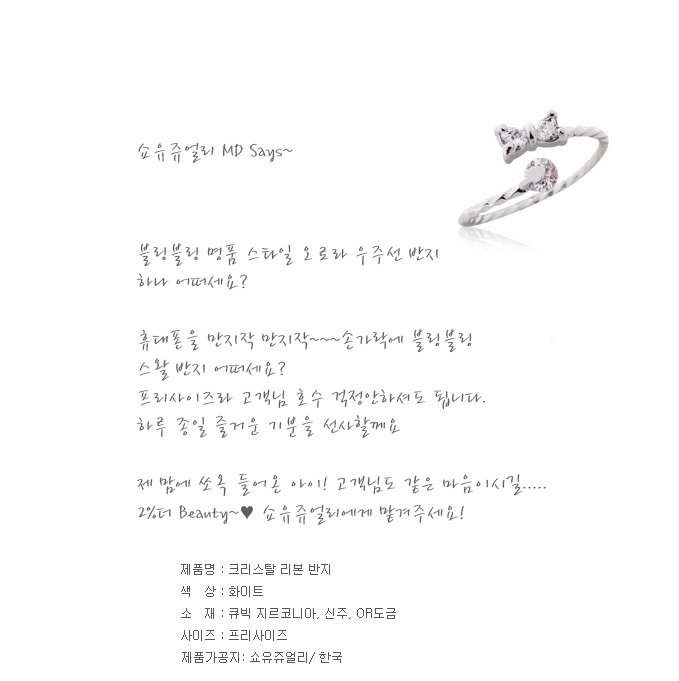 쇼유쥬얼리 MD Says~
블링블링 명품 스타일 오로라 우주선 반지
하나 어떠세요?
휴대폰을 만지작 만지작~~~손가락에 블링블링
스왈 반지 어떠세요?
프리사이즈라 고객님 호수 걱정안하셔도 됩니다.
하루 종일 즐거운 기분을 선사할께요
제 맘에 쏘옥 들어온 아이! 고객님도 같은 마음이시길.....
2%더 Beauty~♥ 쇼유쥬얼리에게 맡겨주세요!
제품명 : 크리스탈 리본 반지
색 상 : 화이트
소 재 : 큐빅 지르코니아, 신주, OR도금
사이즈 : 프리사이즈
제품가공지: 쇼유쥬얼리/ 한국